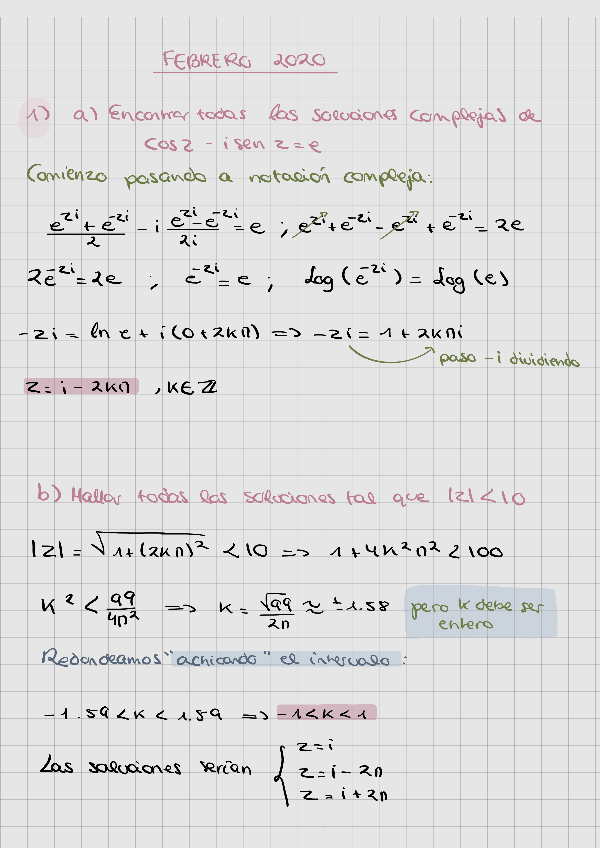 FEBRERO 2020
1) a) Encontrar todas las soluciones complejas de
cos z - i sen z = e
Comienzo pasando a notación compleja:
\frac{e^{zi} + e^{-zi}}{2} - i \frac{e^{zi} - e^{-zi}}{2i} = e ; e^{zi} + e^{-zi} - e^{zi} + e^{-zi} = 2e
2e^{-zi} = 2e ; e^{-zi} = e ; Log(e^{-zi}) = Log(e)
-zi = ln e + i(0 + 2kπ) => -zi = 1 + 2kπi
paso -i dividiendo
z = i - 2kπ , k ∈ ℤ
b) Hallar todas las soluciones tal que |z| < 10
|z| = \sqrt{1 + (2kπ)^2} < 10 => 1 + 4k^2π^2 < 100
k^2 < \frac{99}{4π^2} => k = \frac{\sqrt{99}}{2π} ≈ ±1.58 pero k debe ser
entero
Redondeamos "achicando" el intervalo:
-1.59 < k < 1.59 => -1 < k < 1
Las soluciones serían { z = i
z = i - 2π
z = i + 2π